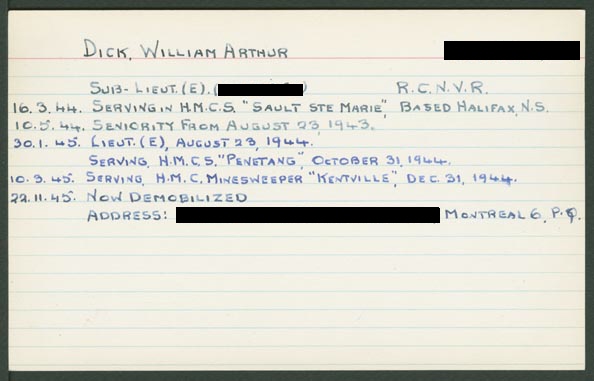 DICK, WILLIAM ARTHUR
SUB-LIEUT.(E). ( ) R.C.N.V.R.
16.3.44. SERVING IN H.M.C.S. "SAULT STE MARIE", BASED HALIFAX, N.S.
10.5.44. SENIORITY FROM AUGUST 23, 1943.
30.1.45. LIEUT.(E), AUGUST 23, 1944.
SERVING, H.M.C.S. "PENETANG", OCTOBER 31, 1944.
10.3.45. SERVING, H.M.C. MINESWEEPER "KENTVILLE", DEC. 31, 1944.
22.11.45. NOW DEMOBILIZED
ADDRESS: MONTREAL 6, P.Q.